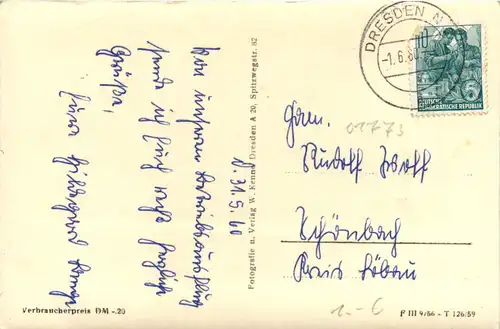 N. 31.5.60
Von unserem Betriebsausflug
sende ich Euch recht herzliche
Grüße,
Eure Hildegard
Fotografie u. Verlag W. Kenner Dresden A 20, Spitzwegstr. 82
DRESDEN N
-1.6.60
10
5
DEUTSCHE
DEMOKRATISCHE REPUBLIK
01773
Fam.
Rudolf Wolf
Schönbach
Kreis Löbau
1.-
Verbraucherpreis DM -.20
F III 9/86 - T 126/59